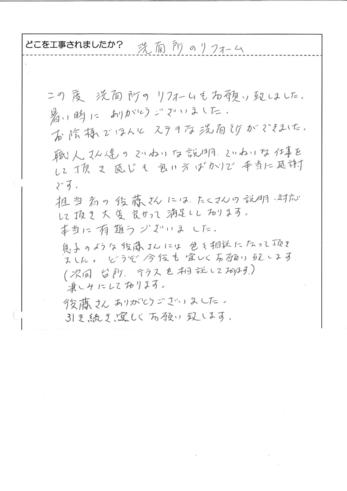 どこを工事されましたか？ 洗面所のリフォーム
この度 洗面所のリフォームもお願い致しました。
暑い時に ありがとうございました。
お陰様でほんと ステキな洗面所ができました。
職人さん達の ていねいな説明、ていねいな仕事を
して頂き 感じも良い方ばかりで 本当に感謝
です。
担当者の佐藤さんには たくさんの説明・対応
して頂き 大変良かって満足しております。
本当に有難うございました。
息子のような佐藤さんには 色々相談にのって頂き
ました。どうぞ今後も宜しくお願い致します
(次回 台所、テラスも相談しております)
楽しみにしております。
佐藤さんありがとうございました。
引き続き宜しくお願い致します。